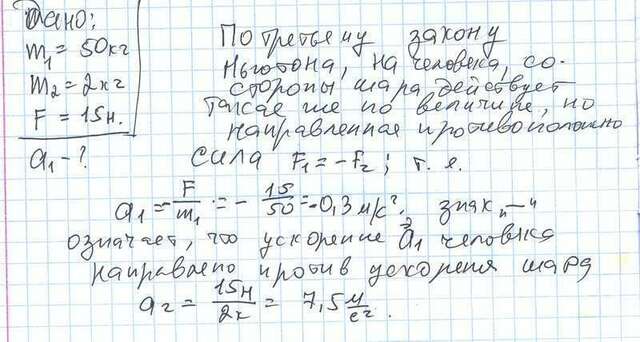 Дано:
m₁ = 50кг
m₂ = 2кг
F = 15н.
a₁ - ?
По третьему закону
Ньютона, на человека, со
стороны шара действует
такая же по величине, но
направленная противоположно
сила F₁ = -F₂; т. е.
a₁ = - F/m₁ = - 15/50 = -0,3 м/с², знак „—“
означает, что ускорение a⃗₁ человека
направлено против ускорения шара
a₂ = 15н/2к = 7,5 м/с².